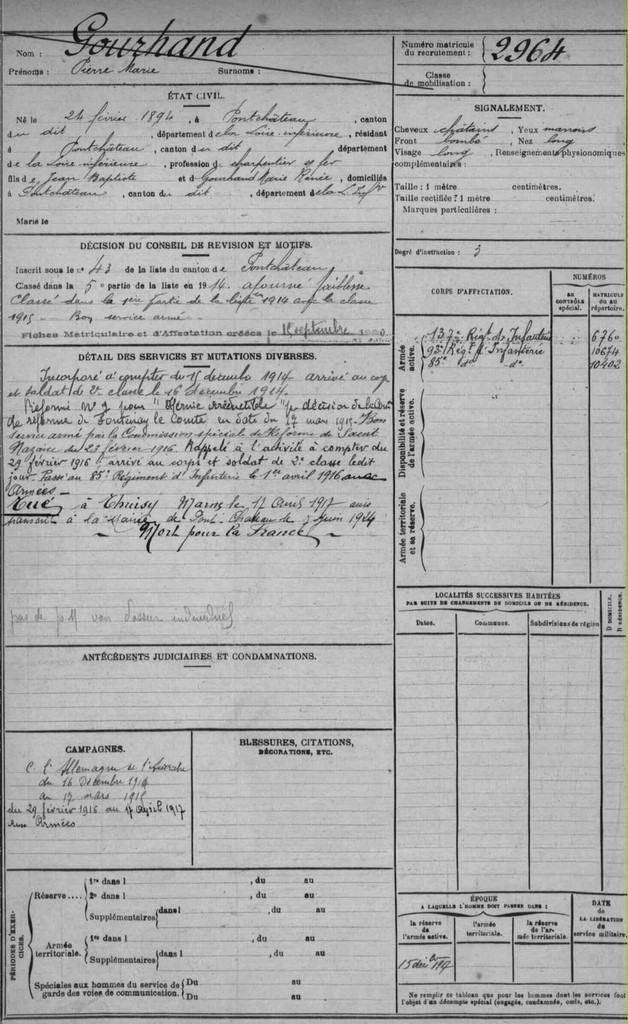 Nom : Gourhand
Prénoms : Pierre Marie Surnoms :
Numéro matricule du recrutement : 2964
Classe de mobilisation :
ÉTAT CIVIL.
Né le 24 février 1894, à Pontchâteau, canton
du dit, département de la Loire-inférieure, résidant
à Pontchâteau, canton du dit département
de la Loire-inférieure, profession de charpentier s/ fer
fils de Jean Baptiste et de Gourhand Marie Renée, domiciliés
à Pontchâteau, canton du dit, département de la L. Infre
Marié le
SIGNALEMENT.
Cheveux châtains, Yeux marrons
Front bombé, Nez long
Visage long, Renseignements physionomiques
complémentaires :
Taille : 1 mètre centimètres.
Taille rectifiée : 1 mètre centimètres.
Marques particulières :
Degré d'instruction : 3
DÉCISION DU CONSEIL DE REVISION ET MOTIFS.
Inscrit sous le n° 43 de la liste du canton de Pontchâteau
Classé dans la 5e partie de la liste en 1914. ajourné faiblesse
Classé dans la 1ère partie de la liste 1914 avec la classe
1915 - Bon service armé -
Fiches Matriculaire et d'Affectation créées le 15 septembre
DÉTAIL DES SERVICES ET MUTATIONS DIVERSES.
Incorporé à compter du 15 décembre 1914 arrivé au corps
et soldat de 2e classe le 16 décembre 1914.
Réformé N° 2 pour "Hernie irréductible" par décision de la Con
de réforme de Fontenay le Comte en date du 17 mars 1915. Bon
service armé par la Commission spéciale de Réforme de Saint
Nazaire du 23 février 1916. Rappelé à l'activité à compter du
29 février 1916 ; arrivé au corps et soldat de 2e classe ledit
jour. Passé au 85e Régiment d'Infanterie le 1er avril 1916 aux
Armées -
Tué à Thuisy Marne le 17 Avril 1917 avis
transmis à la Mairie de Pont-Chateau le Juin 1924
- Mort pour la France -
pas de dossier individuel
CORPS D'AFFECTATION.
NUMÉROS
AU CONTRÔLE spécial.
MATRICULE OU AU répertoire.
Armée active.
137e Régt d'Infanterie 6760
93e Régt d'Infanterie 10674
85e do do 10402
Disponibilité et réserve de l'armée active.
Armée territoriale et sa réserve.
LOCALITÉS SUCCESSIVES HABITÉES
PAR SUITE DE CHANGEMENTS DE DOMICILE OU DE RÉSIDENCE.
Dates.
Communes.
Subdivisions de région
D DOMICILE.
R RÉSIDENCE.
ANTÉCÉDENTS JUDICIAIRES ET CONDAMNATIONS.
CAMPAGNES.
C. l'Allemagne et l'Autriche
du 16 Décembre 1914
au 17 mars 1915
du 29 février 1916 au 17 Avril 1917
aux Armées
BLESSURES, CITATIONS,
DÉCORATIONS, ETC.
PÉRIODES D'EXERCICES.
Réserve....
1re dans l , du au
2e dans l , du au
Supplémentaires dans l , du au
, du au
Armée territoriale.
1re dans l , du au
Supplémentaires dans l , du au
, du au
Spéciales aux hommes du service de garde des voies de communication.
Du au
Du au
ÉPOQUE
A LAQUELLE L'HOMME DOIT PASSER DANS :
la réserve de l'armée active.
l'armée territoriale.
la réserve de l'armée territoriale.
DATE
de
LA LIBÉRATION
du
service militaire.
15 déc bre 1917
Ne remplir ce tableau que pour les hommes dont les services font
l'objet d'un décompte spécial (engagés, condamnés, omis, etc.)